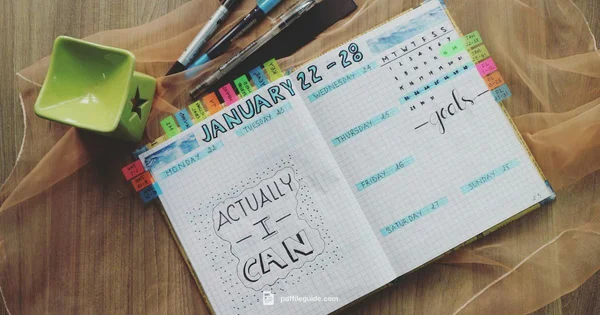 JANUARY 22-28
MONDAY 22
TUESDAY 23
ACTUALLY
- I -
CAN
WEDNESDAY 24
M T W T F S S
THURSDAY 25
- goals -
FRIDAY 26
SATURDAY 27
SUNDAY 28
pdffileguide.com